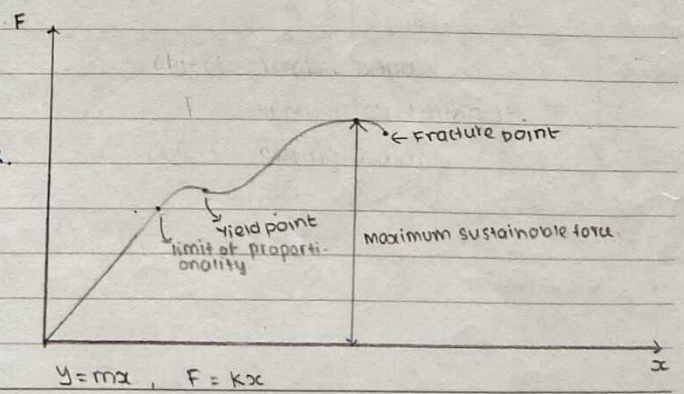 F
← Fracture point
Yield point
limit of proporti-
onality
maximum sustainable force.
x
y=mx , F = Kx